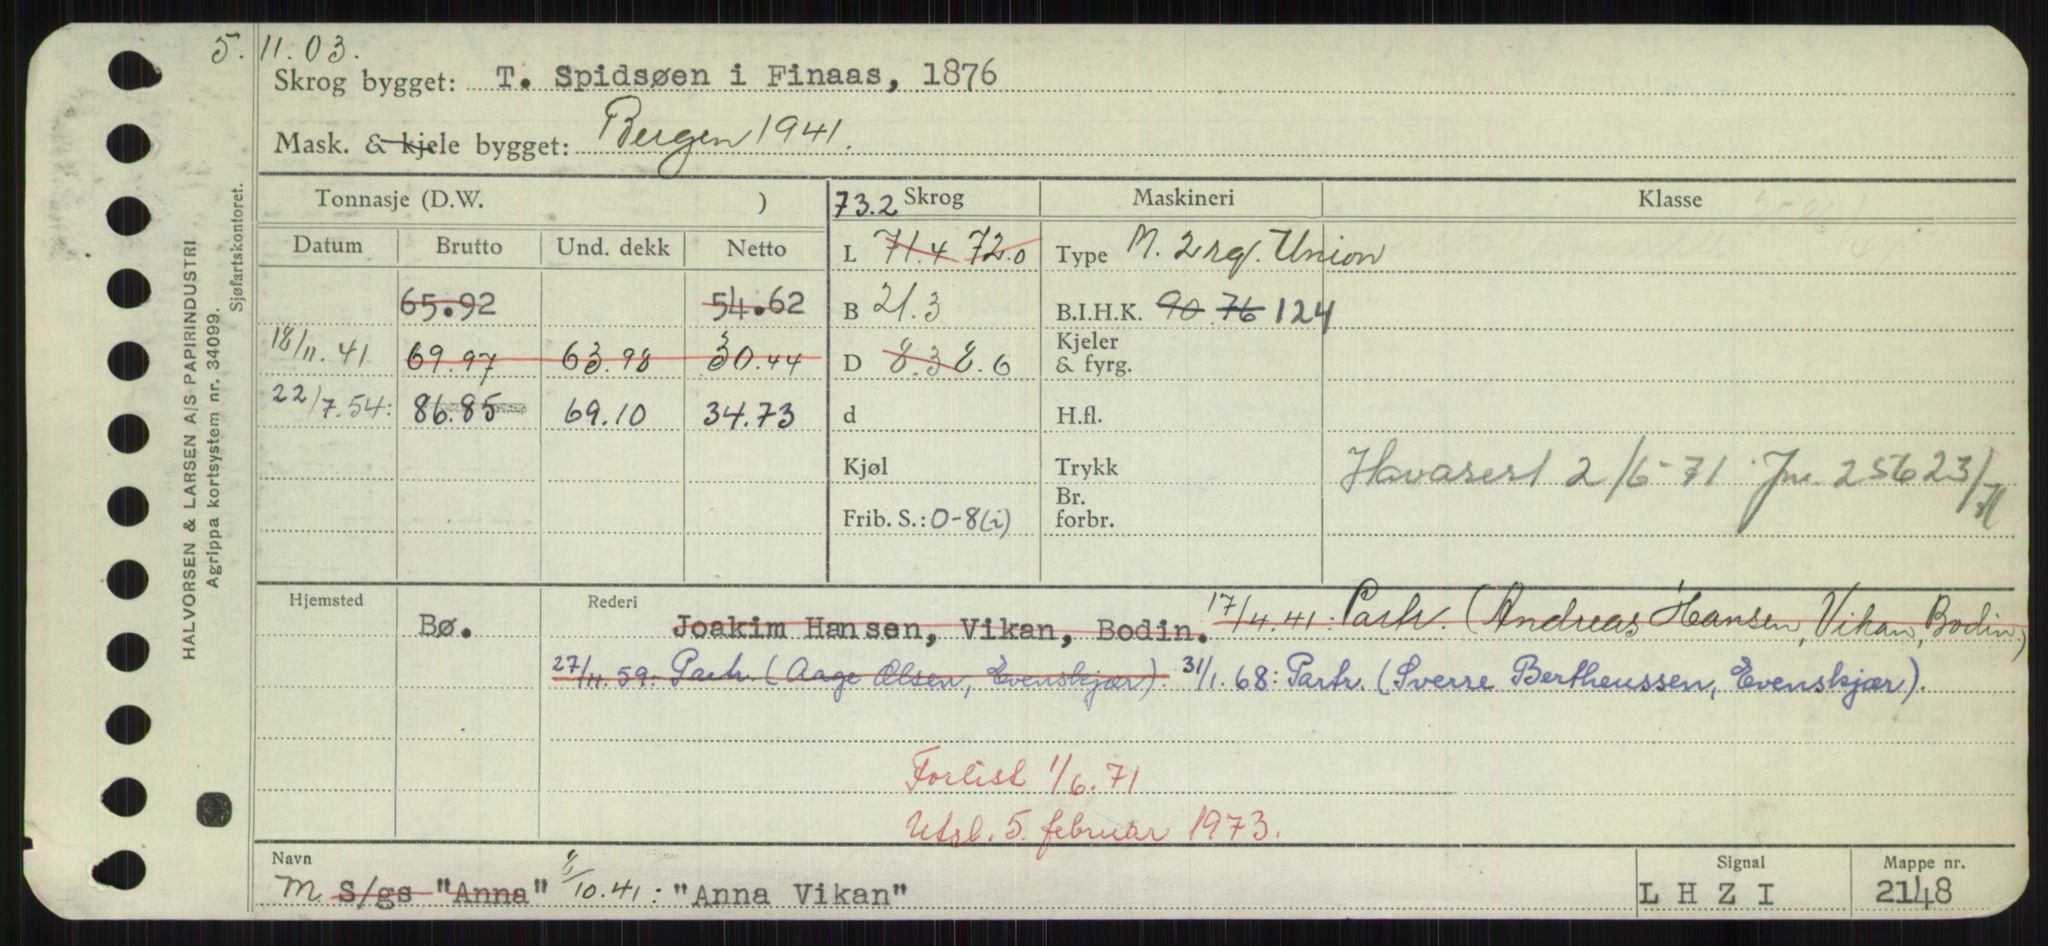 5. 11.03.
Skrog bygget: T. Spidsøen i Finaas, 1876
Mask. & kjele bygget: Bergen 1941.
Tonnasje (D.W. ) 73.2 Skrog Maskineri Klasse
Datum Brutto Und. dekk Netto L 71.4 72.0 Type M. 2 rg. Union
65.92 54.62 B 21.3 B.I.H.K. 90 76 124
18/11.41 69.97 63.98 30.44 D 8.3 8.6 Kjeler & fyrg.
22/7.54: 86.85 69.10 34.73 d H.fl.
Kjøl Trykk Havarert 2/6-71 Jnr. 25623/71
Frib. S.: 0-8(i) Br. forbr.
Hjemsted Rederi
Bø. Joakim Hansen, Vikan, Bodin. 17/4.41: Partr. (Andreas Hansen, Vikan, Bodin)
27/11.59: Partr. (Aage Olsen, Evenskjær). 31/1.68: Partr. (Sverre Bertheussen, Evenskjær).
Forlist 1/6.71
Utsl. 5. februar 1973.
Navn Signal Mappe nr.
M S/gs "Anna" 8/10.41: "Anna Vikan" L H Z I 2148
HALVORSEN & LARSEN A/S PAPIRINDUSTRI
Agrippa kortsystem nr. 34099.
Sjøfartskontoret.